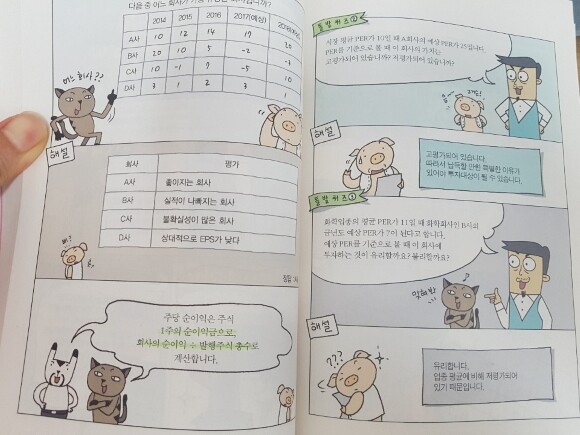 다음 중 어느 회사가
2014 2015 2016 2017(예상)
A사 10 12 14 17 20
B사 20 10 5 -2
C사 10 -1 7 -5 10
D사 3 1 2 3 1
어느 회사??
해설
회사 평가
A사 좋아지는 회사
B사 실적이 나빠지는 회사
C사 불확실성이 많은 회사
D사 상대적으로 EPS가 낮다
정답
주당 순이익은 주식
1주의 순이익금으로,
회사의 순이익 ÷ 발행주식 총수로
계산합니다.
돌발퀴즈②
시장 평균 PER가 10일 때 A회사의 예상 PER가 15입니다.
PER를 기준으로 볼 때 이 회사의 가치는
고평가되어 있습니까? 저평가되어 있습니까?
해설
고평가되어 있습니다.
따라서 납득할 만한 특별한 이유가
있어야 투자대상이 될 수 있습니다.
돌발퀴즈③
화학업종의 평균 PER가 11일 때 화학회사인 B사의
금년도 예상 PER가 7이 된다고 합니다.
예상 PER를 기준으로 볼 때 이 회사에
투자하는 것이 유리할까요? 불리할까요?
맞혀봐!!
???
해설
유리합니다.
업종 평균에 비해 저평가되어
있기 때문입니다.